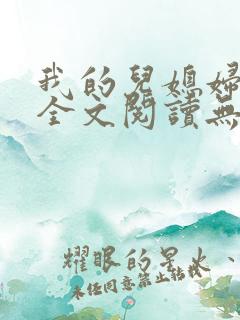 我的兒媳婦
全文閱讀無
耀眼的星火、
未经同意禁止转载